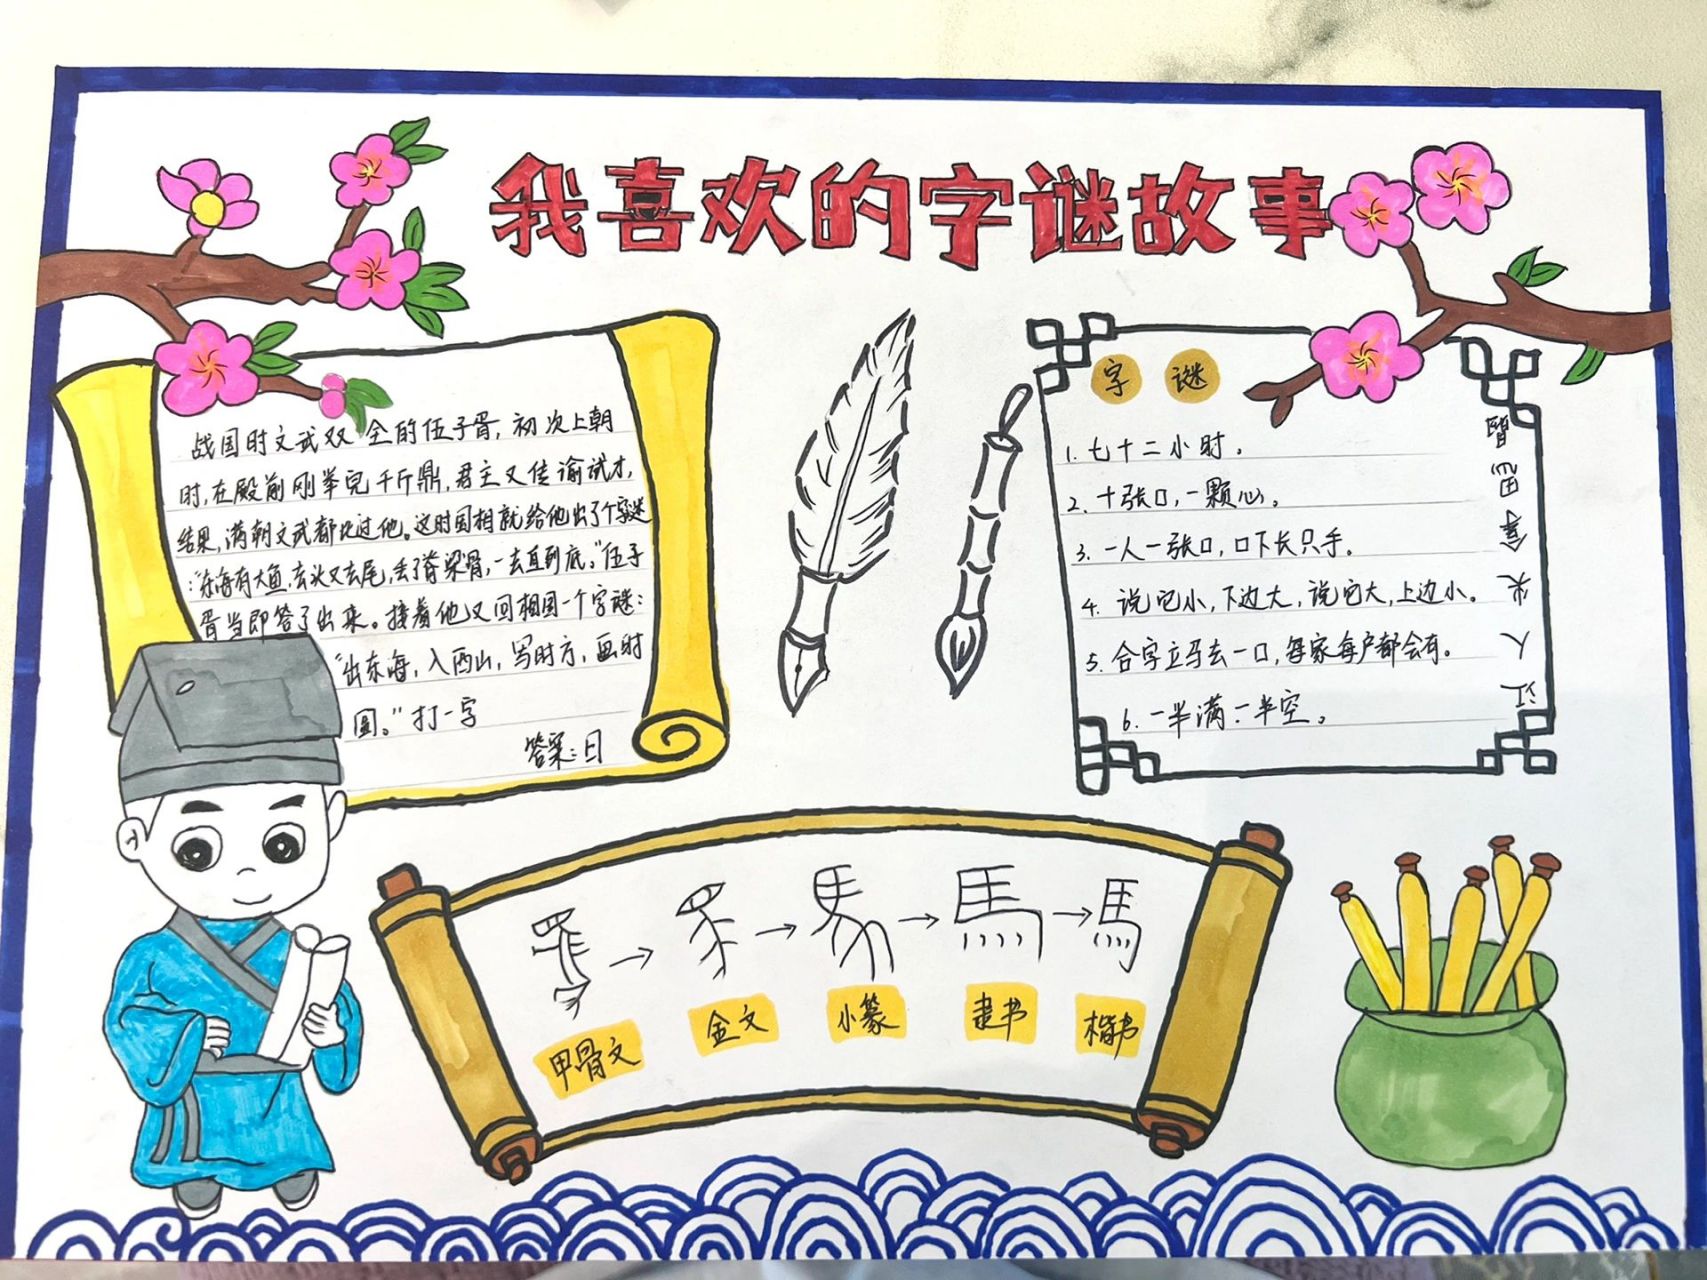 我喜欢的字谜故事
战国时文武双全的伍子胥,初次上朝
时,在殿前刚举完千斤鼎,君主又传谕试才,
结果,满朝文武都比过他。这时国相就给他出了个字谜
:“东海有大鱼,去头又去尾,丢了脊梁骨,一去直到底。”伍子
胥当即答了出来。接着他又回相国一个字谜:
“出东海,入西山,写时方,画时
圆。”打一字
答案:日
字谜
1.七十二小时。
2.十张口,一颗心。
3.一人一张口,口下长只手。
4.说它小,下边大,说它大,上边小。
5.合字立马去一口,每家每户都会有。
6.一半满一半空。
晶 思 拿 尖 人 江
甲骨文
金文
小篆
隶书
楷书
馬
馬